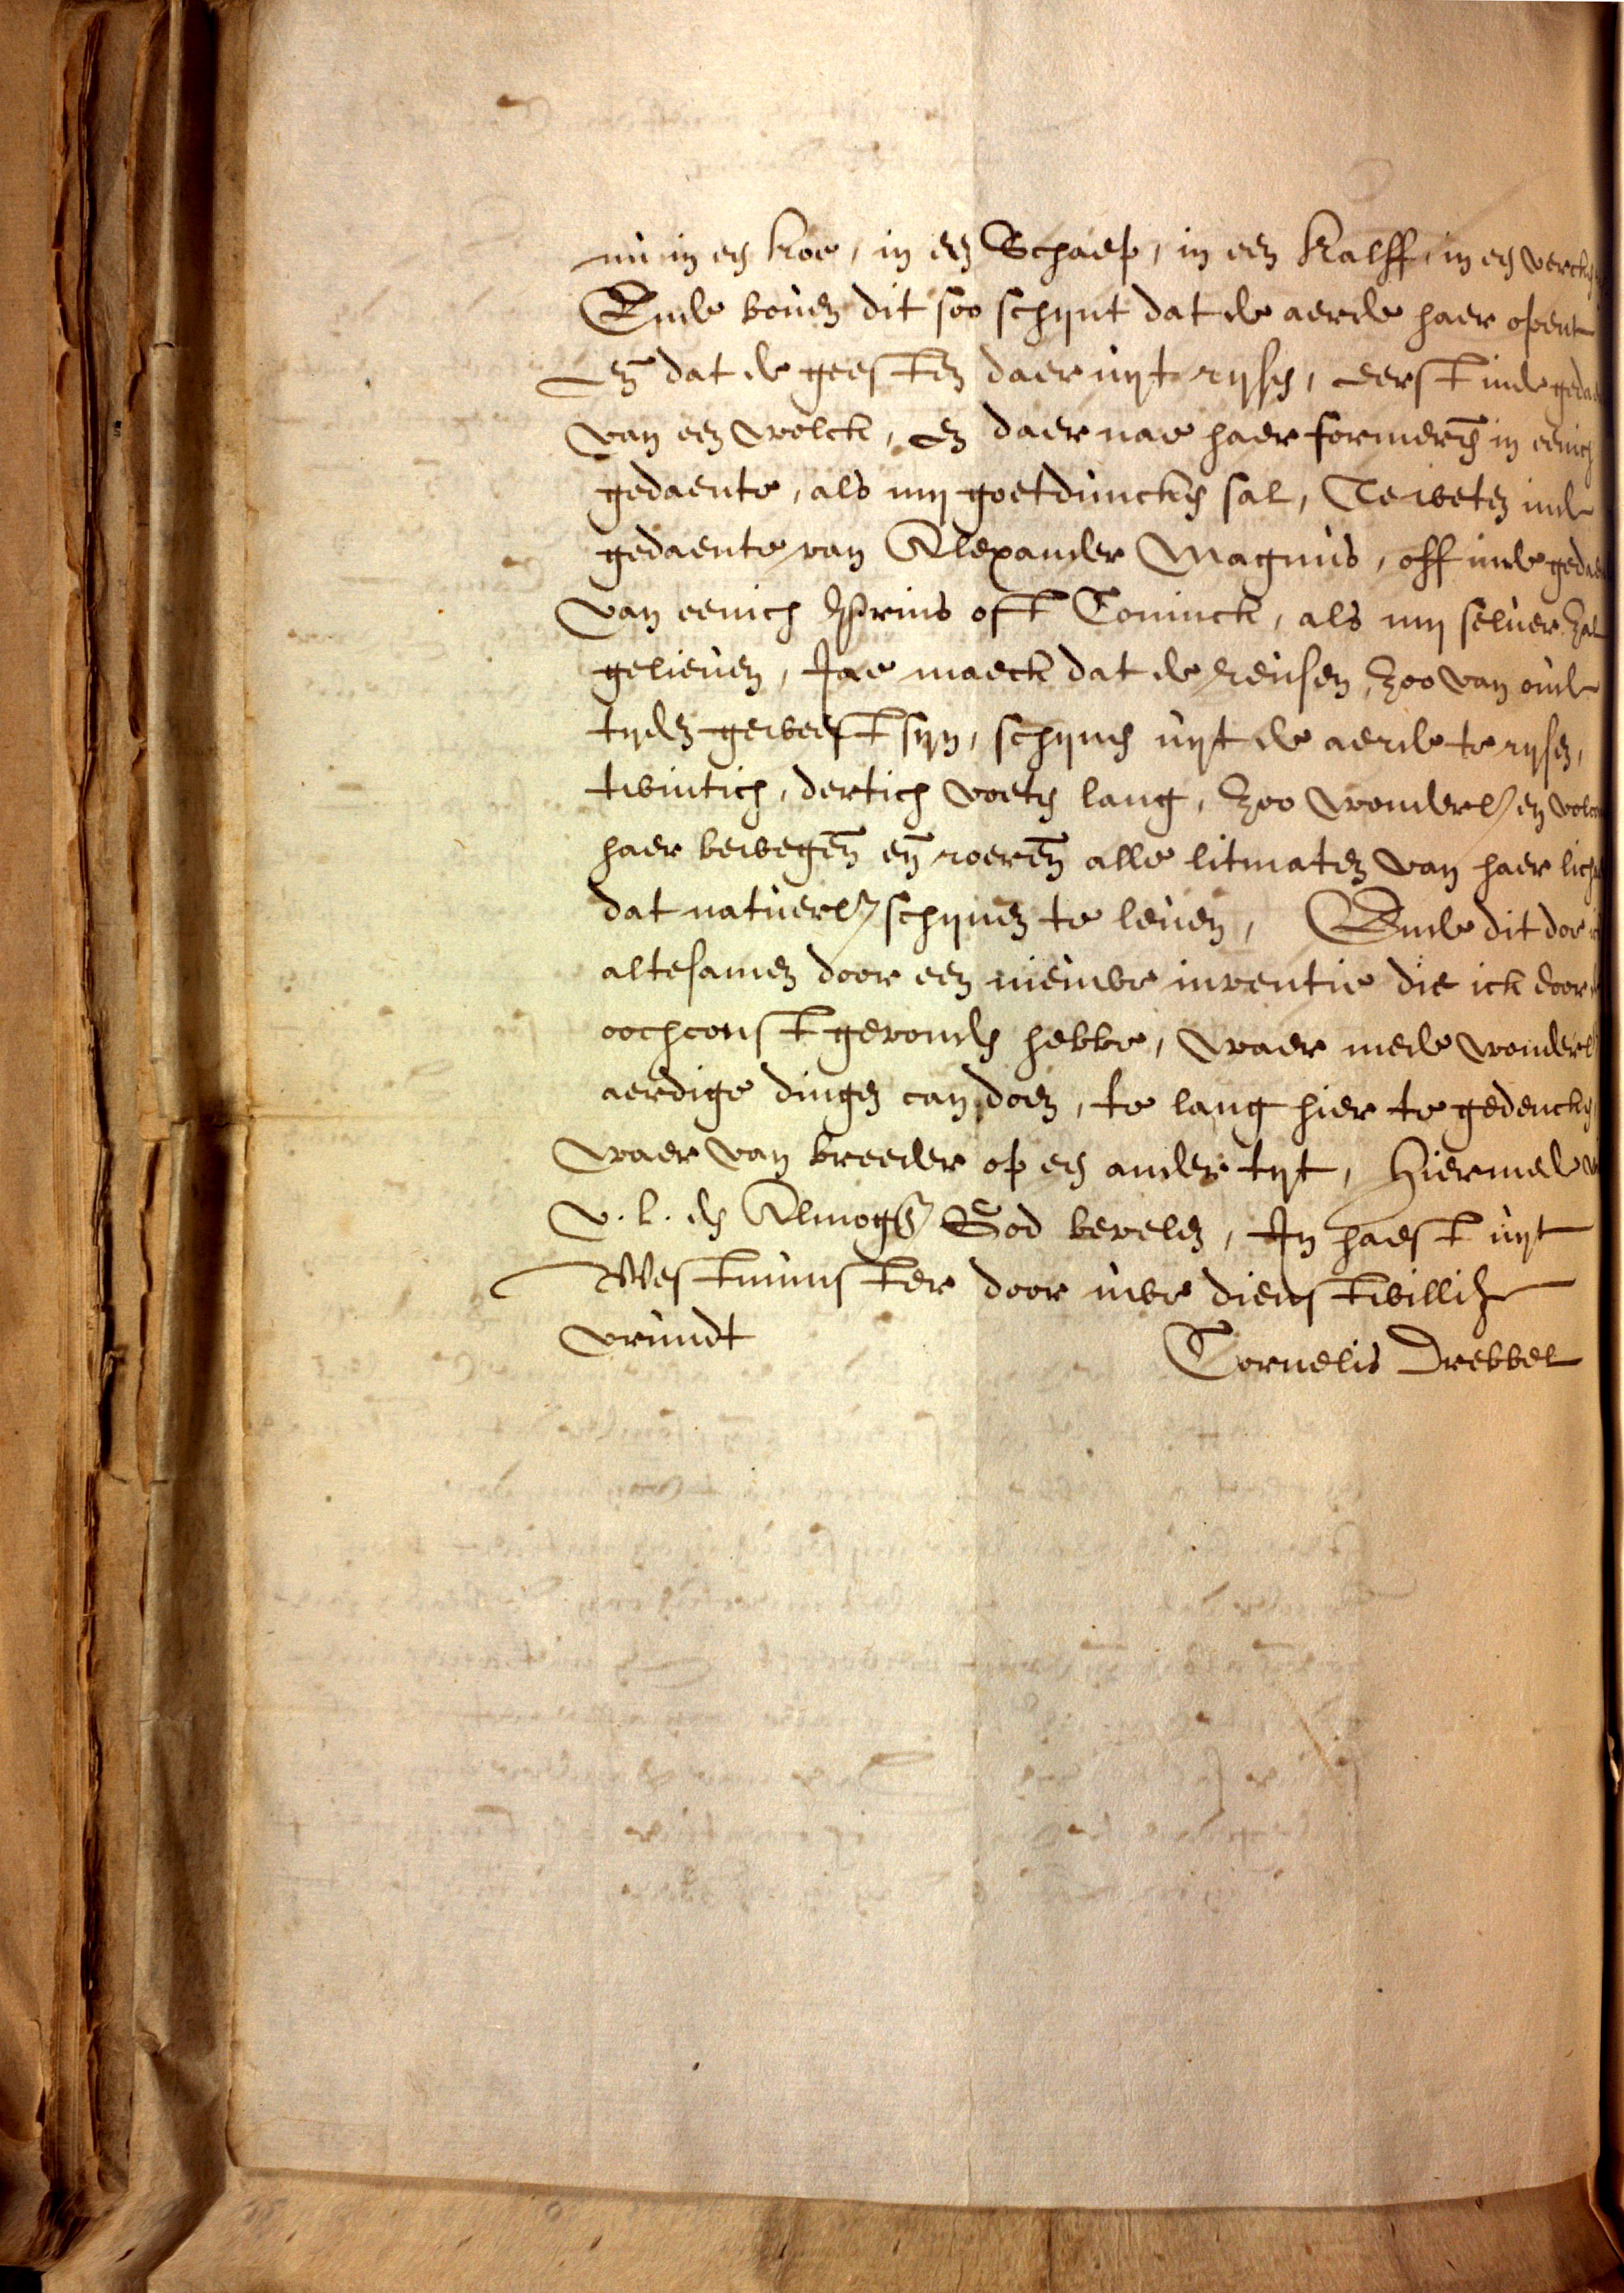 nu in een koe, in een Schaep, in een kalff, in een vercken
Ende boven dit soo schijnt dat de aerde haer opent
en dat de geesten daer uijt rijsen, eerst inde gedae
van een wolck, en daer nae haer formeren in eenich
gedaente, als mij goetduncken sal, Te weten inde
gedaente van Alexander Magnus, off inde gedae
van eenich Prins oft Coninck, als mij selver zal
gelieven, Jae maeck dat de reusen, zoo van oude
tijden geweest sijn, schijnen uijt de aerde te rijsen,
twintich, dertich voeten lang, Zoo wonderl en volco
haer bewegen en roeren alle litmaten van haer lich
dat natuerl schijnen te leven, Ende dit doe
altesamen door een nieuwe inventie die ick door
oochconst gevonden hebbe, waer mede wonderl
aerdige dingen can doen, te lang hier te gedencken
waer van breeder op een ander tijt, Hiermede
v. l. den Almog God bevelen, In haest uijt
Westmunster door uwe dienstwillige
vrundt
Cornelis Drebbel